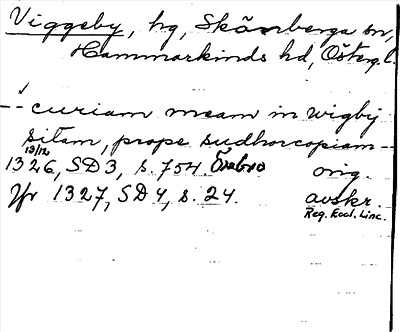 Viggeby, hg, Skönberga sn,
Hammarkinds hd, Österg.l.
-- curiam meam in wigby
sitam, prope sudhorcopiam --
13/12
1326, SD 3, s. 754. Örebro orig.
Jfr 1327, SD 4, s. 24. avskr.
Reg. Eccl. Linc.